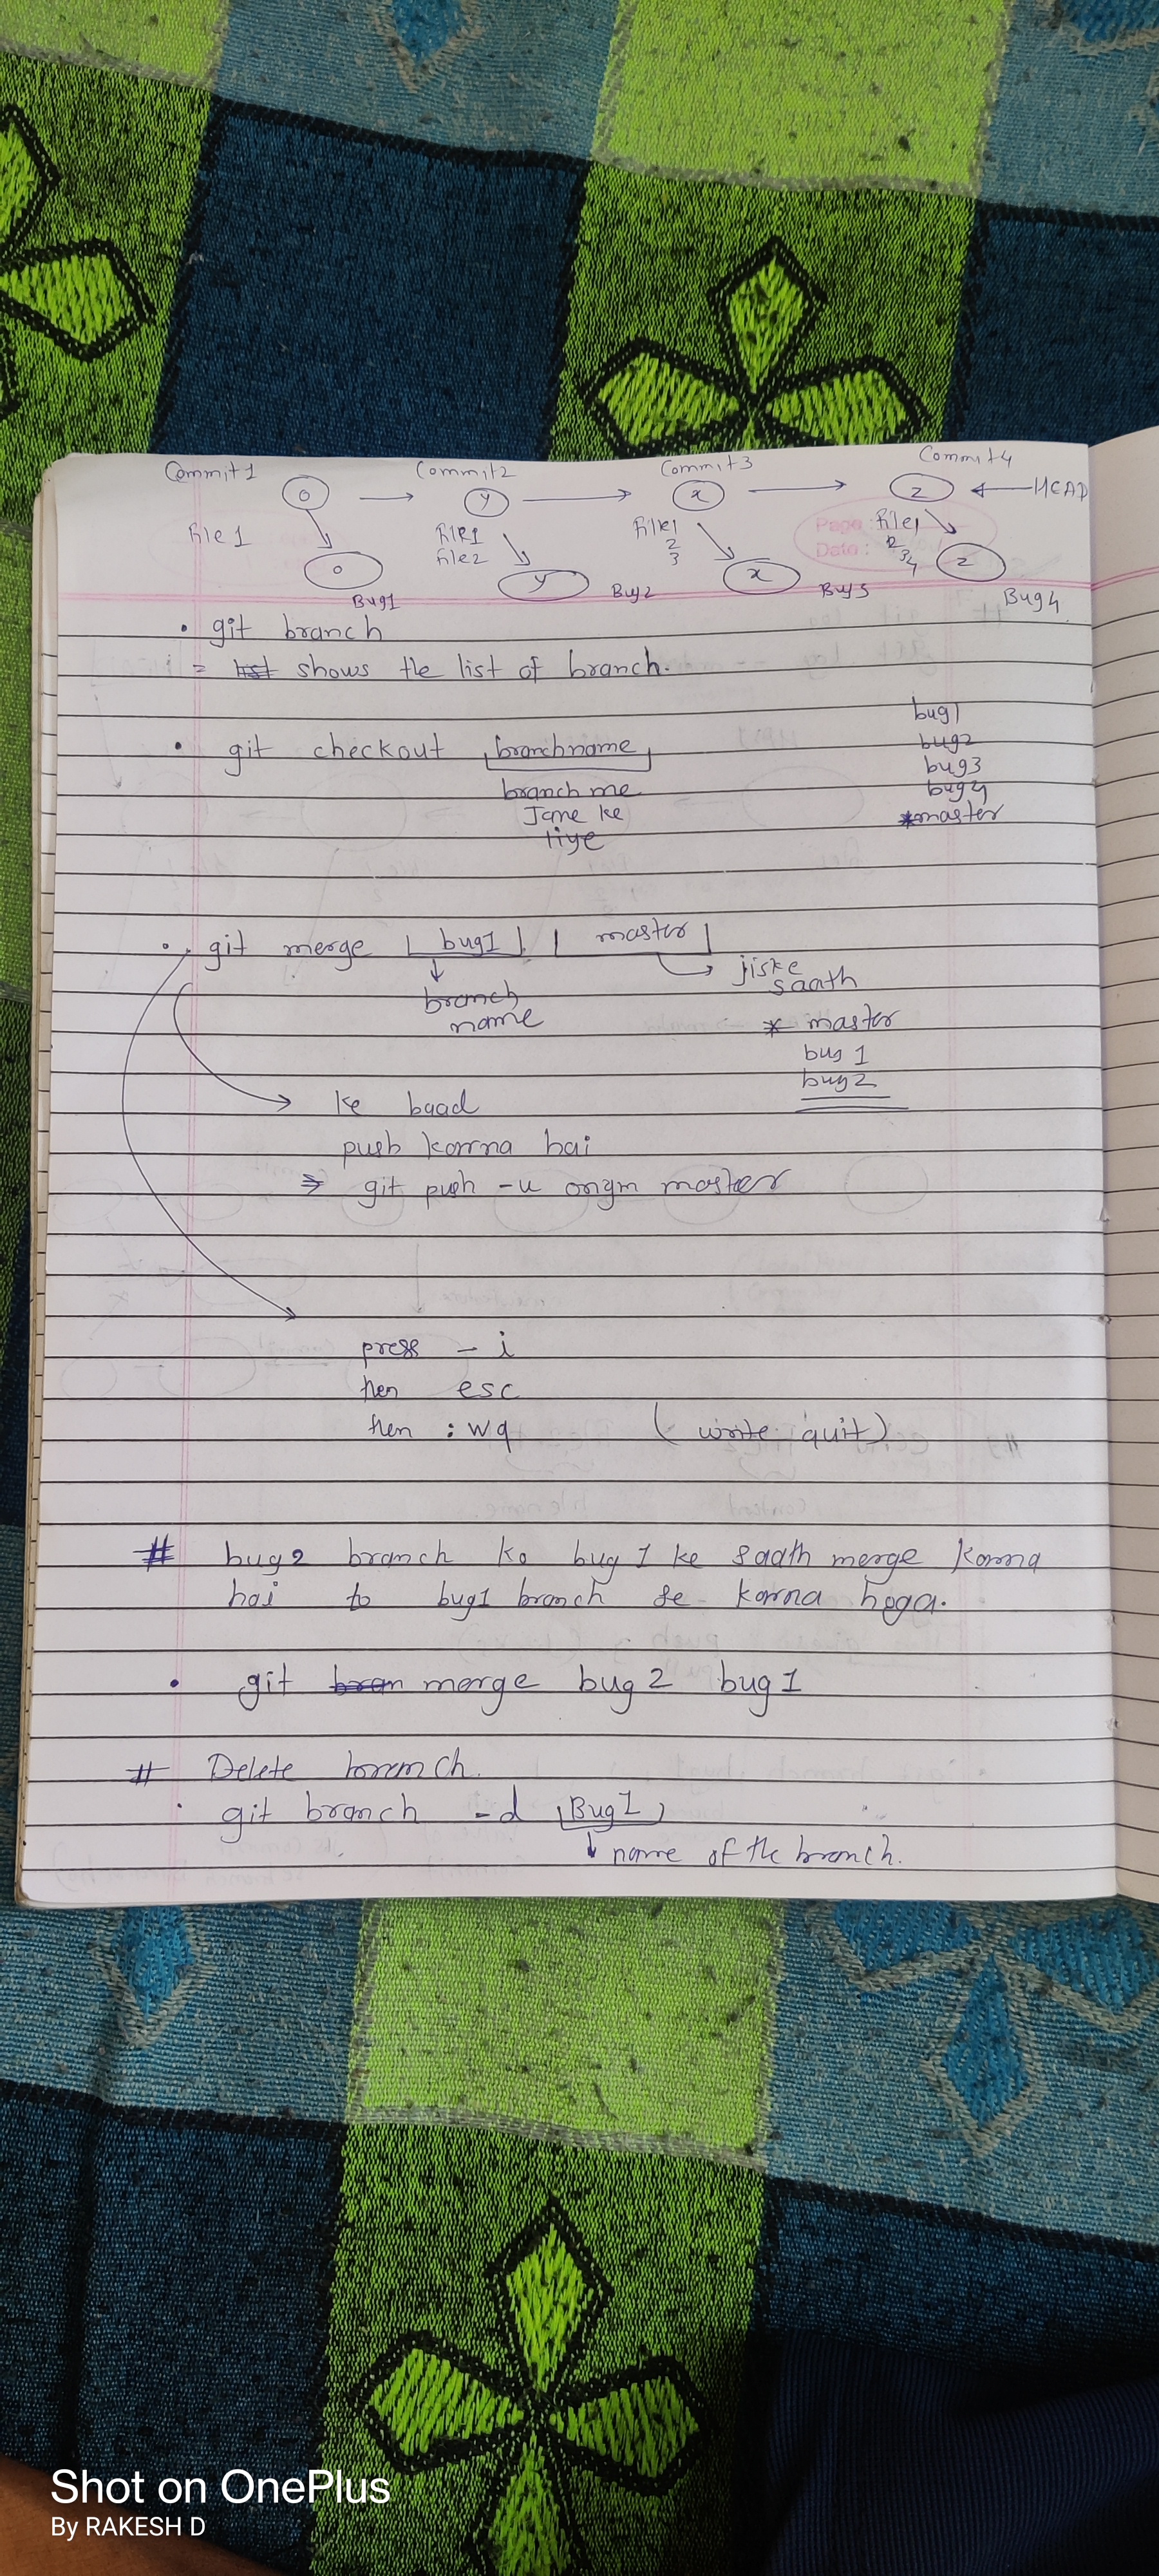 Commit1 Commit2 Commit3 Commit4
o → y → x → z ← HEAD
file 1 file1 file1 Page: file1
file2 2 3 Date: 2 3 4
o y x z
Bug1 Bug2 Bug3 Bug4
• git branch
= shows the list of branch.
• git checkout branchname
branch me
Jane ke
liye
bug1
bug2
bug3
bug4
*master
• git merge bug1 master
branch
name
jiske
saath
* master
bug 1
bug2
ke baad
push karna hai
⇒ git push -u origin master
press - i
then esc
then :wq (write quit)
# bug2 branch ko bug1 ke saath merge karna
hai to bug1 branch se karna hoga.
• git merge bug2 bug1
# Delete branch.
• git branch -d Bug1
↓ name of the branch.
Shot on OnePlus
By RAKESH D